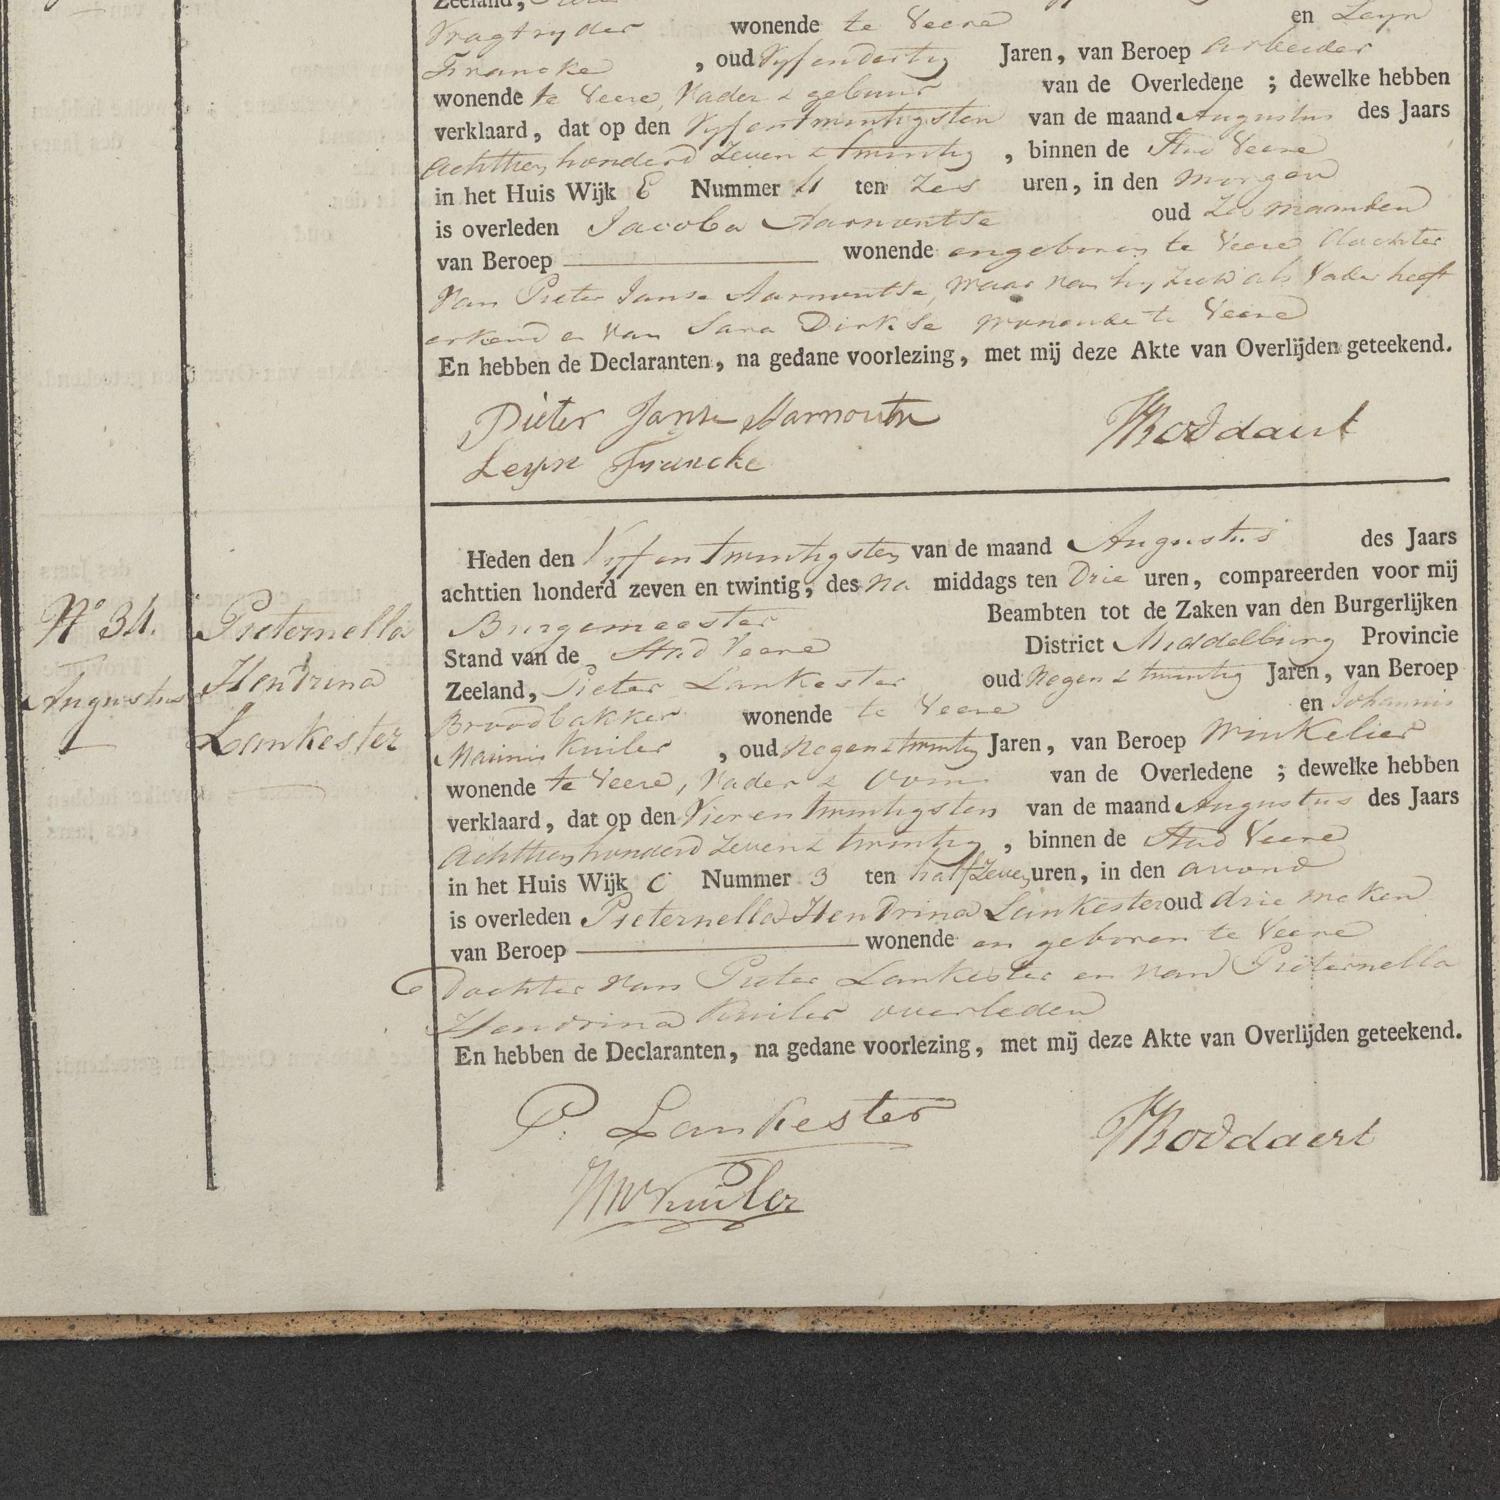 Zeeland, Pieter
Vragtryder wonende te Veere en Leyn
Francke , oud Vyfendertig Jaren, van Beroep arbeider
wonende te Veere, Vader & gebuur van de Overledene ; dewelke hebben
verklaard, dat op den Vyfentwintigsten van de maand Augustus des Jaars
achttien honderd Zeven & twintig , binnen de Stad Veere
in het Huis Wijk E Nummer 4 ten Zes uren, in den morgen
is overleden Jacoba Aarnoutse oud Zes maanden
van Beroep wonende en geboren te Veere dochter
van Pieter Janse Aarnoutse, waar van hy zich als Vader heeft
erkend en van Sara Dirkse wonende te Veere
En hebben de Declaranten, na gedane voorlezing, met mij deze Akte van Overlijden geteekend.
Pieter Janse Aarnoutse
Leyn Francke
Boddaert
Nº 34.
Augustus
Pieternella
Hendrina
Lankester
Heden den Vyfentwintigsten van de maand Augustus des Jaars
achttien honderd zeven en twintig, des na middags ten Drie uren, compareerden voor mij
Burgemeester Beambten tot de Zaken van den Burgerlijken
Stand van de Stad Veere District Middelburg Provincie
Zeeland, Pieter Lankester oud Negen & twintig Jaren, van Beroep
Broodbakker wonende te Veere en Johannis
Marinis Kuiler , oud Negen & twintig Jaren, van Beroep Winkelier
wonende te Veere, Vader & Oom van de Overledene ; dewelke hebben
verklaard, dat op den Vierentwintigsten van de maand Augustus des Jaars
achttien honderd Zeven & twintig , binnen de Stad Veere
in het Huis Wijk C Nummer 3 ten half Zeven uren, in den avond
is overleden Pieternella Hendrina Lankester oud drie weken
van Beroep wonende en geboren te Veere
Dochter van Pieter Lankester en van Pieternella
Hendrina Kuiler overleden
En hebben de Declaranten, na gedane voorlezing, met mij deze Akte van Overlijden geteekend.
P. Lankester
JM Kuiler
Boddaert